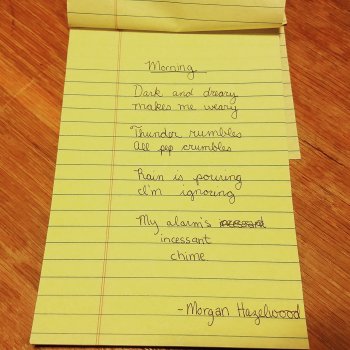 Morning
Dark and dreary
makes me weary
Thunder rumbles
All pep crumbles
Rain is pouring
I'm ignoring
My alarm's
incessant
chime
-Morgan Hazelwood